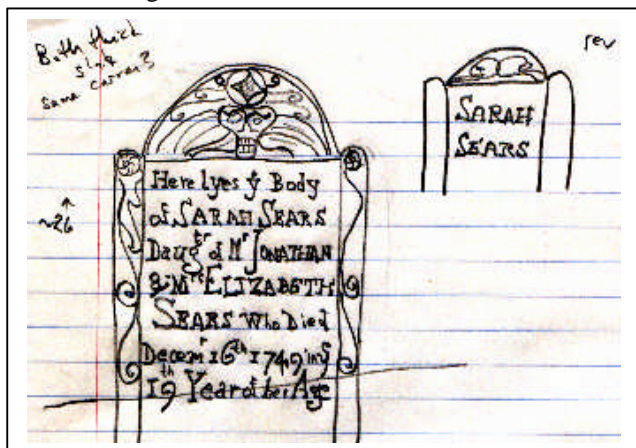 Both thick
slate
same carver?
rev
SARAH
SEARS
~26
Here lyes yͤ Body
of SARAH SEARS
Daugᵗʳ of Mʳ JONATHAN
& Mʳˢ ELIZABETH
SEARS Who Died
Decemʳ 16ᵗʰ 1749 in yͤ
19ᵗʰ Year of her Age